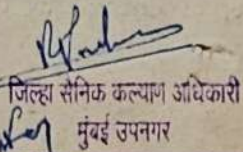 जिल्हा सैनिक कल्याण अधिकारी
मुंबई उपनगर